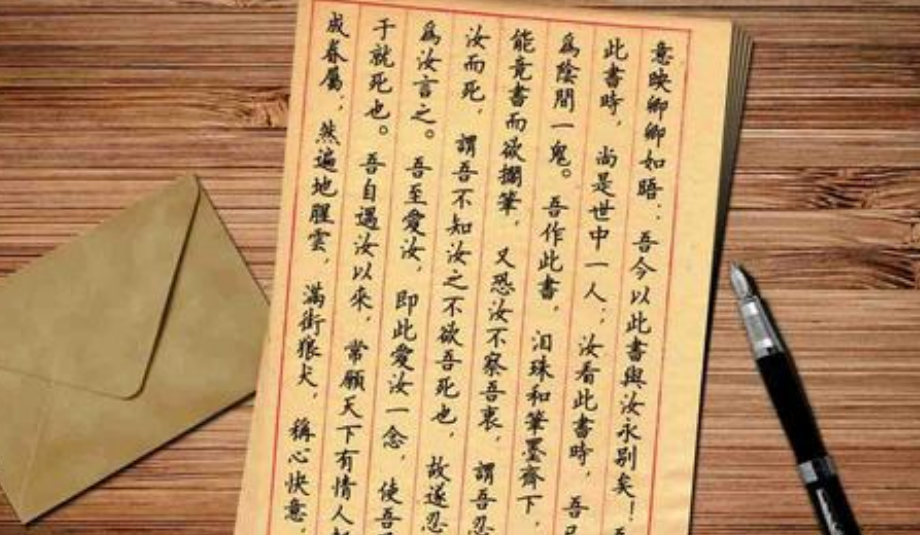 意映卿卿如晤：吾今以此書與汝永別矣！
此書時，尚是世中一人；汝看此書時，吾已
爲陰間一鬼。吾作此書，淚珠和筆墨齊下，
能竟書而欲擱筆，又恐汝不察吾衷，謂吾忍
汝而死，謂吾不知汝之不欲吾死也，故遂忍
爲汝言之。吾至愛汝，即此愛汝一念，使吾
于就死也。吾自遇汝以來，常願天下有情人
成眷屬，然遍地腥雲，滿街狼犬，稱心快意，